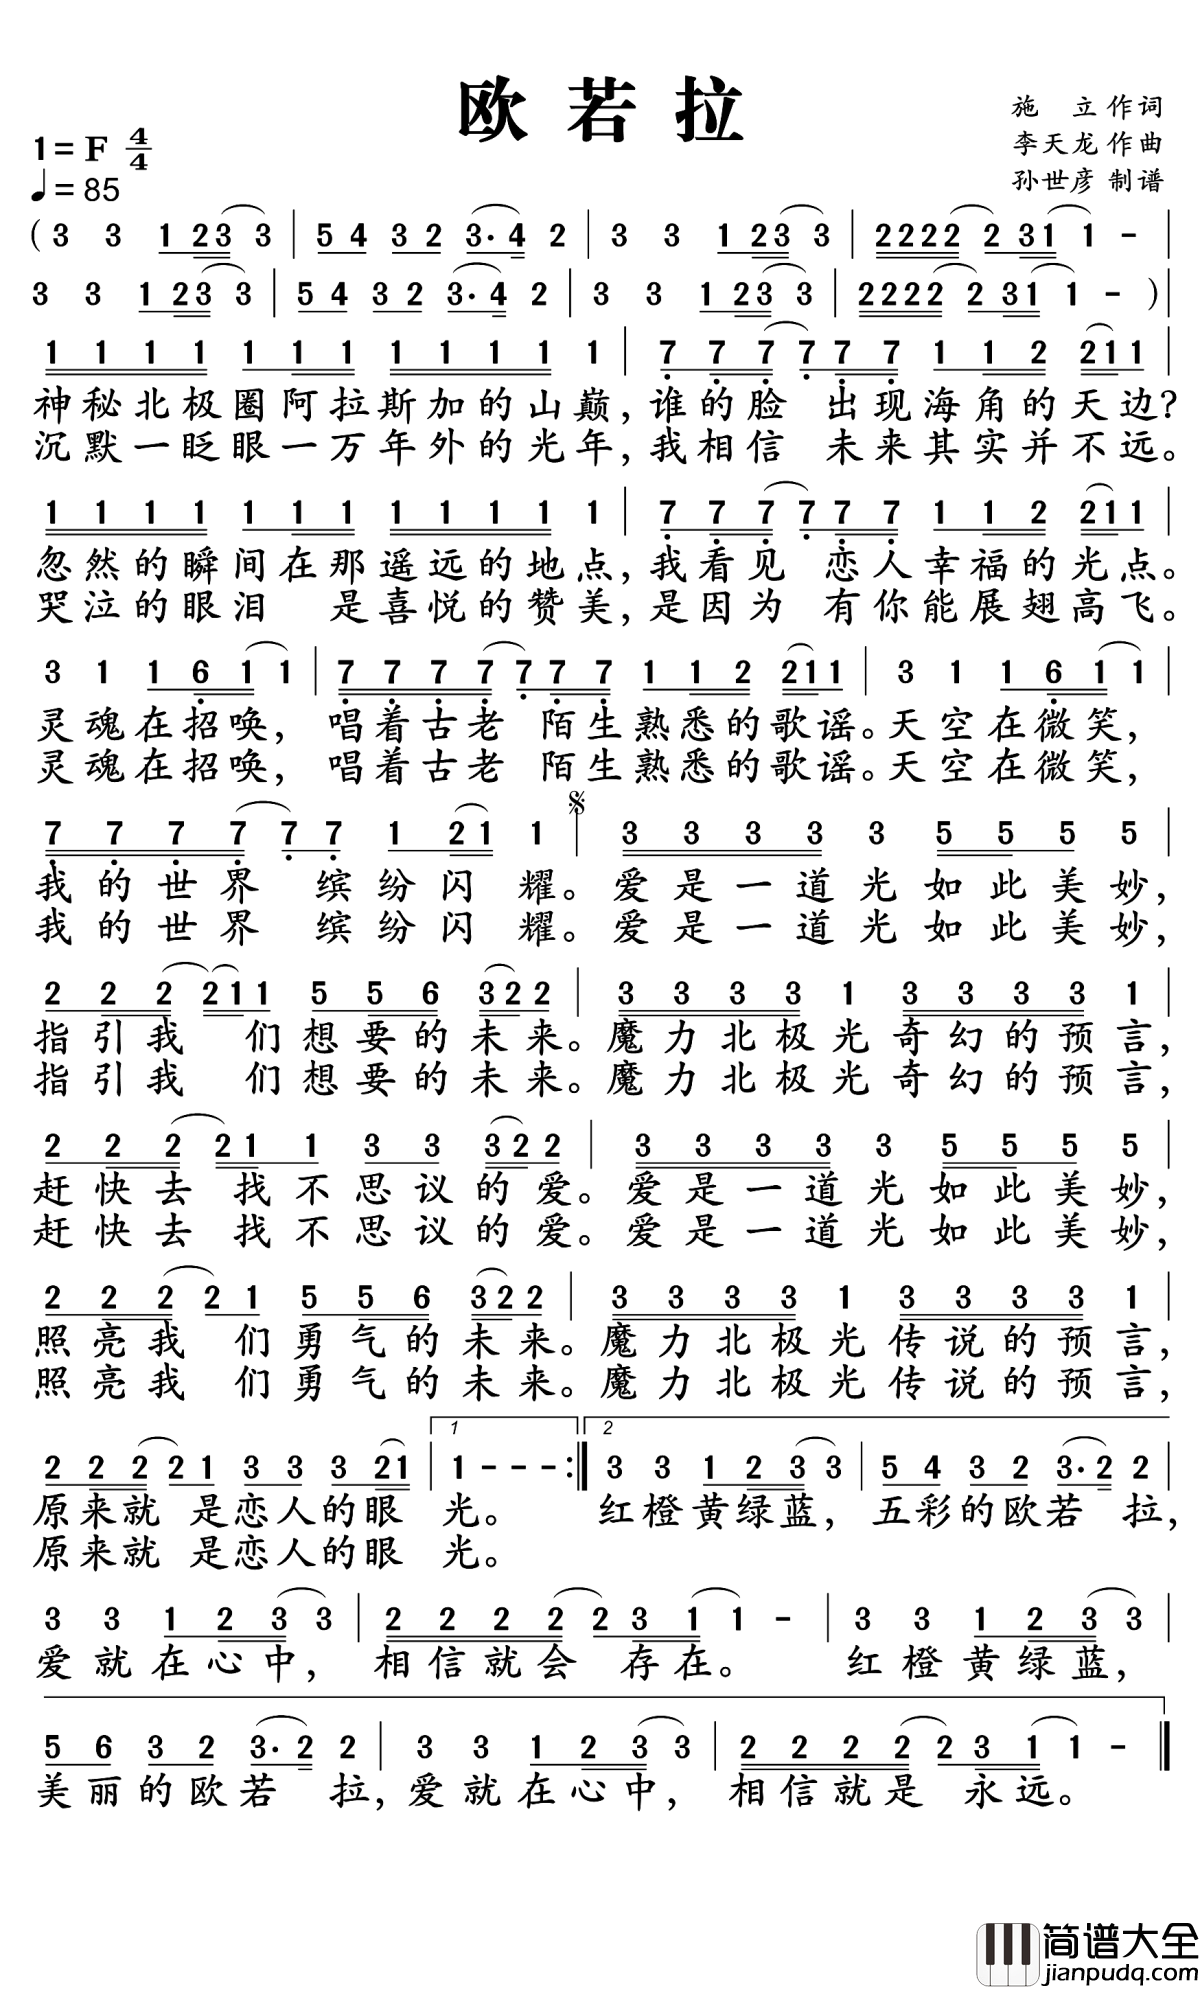 欧若拉
施 立 作词
1=F 4/4
李天龙 作曲
♩=85
孙世彦 制谱
( 3 3 1 2 3 3 | 5 4 3 2 3· 4 2 | 3 3 1 2 3 3 | 2 2 2 2 2 3 1 1 - |
3 3 1 2 3 3 | 5 4 3 2 3· 4 2 | 3 3 1 2 3 3 | 2 2 2 2 2 3 1 1 - ) |
1 1 1 1 1 1 1 1 1 1 1 1 | 7 7 7 7 7 7 1 1 2 2 1 1 |
神秘北极圈阿拉斯加的山巅,谁的脸 出现海角的天边?
沉默一眨眼一万年外的光年,我相信 未来其实并不远。
1 1 1 1 1 1 1 1 1 1 1 1 | 7 7 7 7 7 7 1 1 2 2 1 1 |
忽然的瞬间在那遥远的地点,我看见 恋人幸福的光点。
哭泣的眼泪 是喜悦的赞美,是因为 有你能展翅高飞。
3 1 1 6 1 1 | 7 7 7 7 7 7 7 1 1 2 2 1 1 | 3 1 1 6 1 1 |
灵魂在招唤, 唱着古老 陌生熟悉的歌谣。天空在微笑,
灵魂在招唤, 唱着古老 陌生熟悉的歌谣。天空在微笑,
7 7 7 7 7 7 1 2 1 1 | 3 3 3 3 3 5 5 5 5 |
我的世界 缤纷闪 耀。爱是一道光如此美妙,
我的世界 缤纷闪 耀。爱是一道光如此美妙,
2 2 2 2 1 1 5 5 6 3 2 2 | 3 3 3 3 1 3 3 3 3 1 |
指引我 们想要的未来。魔力北极光奇幻的预言,
指引我 们想要的未来。魔力北极光奇幻的预言,
2 2 2 2 1 1 3 3 3 2 2 | 3 3 3 3 3 5 5 5 5 |
赶快去 找不思议的爱。爱是一道光如此美妙,
赶快去 找不思议的爱。爱是一道光如此美妙,
2 2 2 2 1 5 5 6 3 2 2 | 3 3 3 3 1 3 3 3 3 1 |
照亮我 们勇气的未来。魔力北极光传说的预言,
照亮我 们勇气的未来。魔力北极光传说的预言,
1 2
2 2 2 2 1 3 3 3 2 1 | 1 - - - :| 3 3 1 2 3 3 | 5 4 3 2 3· 2 2 |
原来就 是恋人的眼 光。 红橙黄绿蓝, 五彩的欧若 拉,
原来就 是恋人的眼 光。
3 3 1 2 3 3 | 2 2 2 2 2 3 1 1 - | 3 3 1 2 3 3 |
爱就在心中, 相信就会 存在。 红橙黄绿蓝,
5 6 3 2 3· 2 2 | 3 3 1 2 3 3 | 2 2 2 2 2 3 1 1 - |
美丽的欧若 拉,爱就在心中, 相信就是 永远。
简谱大全
jianpudq.com